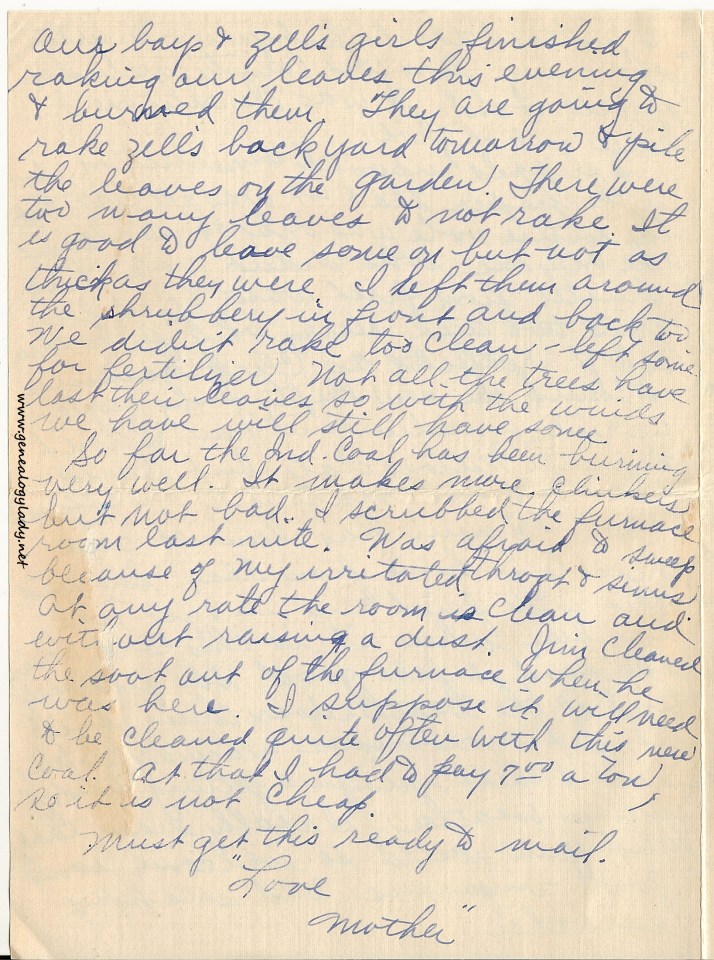 Our boys & Zell's girls finished
raking our leaves this evening
& burned them. They are going to
rake Zell's backyard tomorrow & pile
the leaves on the garden! There were
too many leaves to not rake. It
is good to leave some on but not as
thick as they were. I left them around
the shrubbery in front and back too
We didn't rake too clean - left some
for fertilizer. Not all the trees have
lost their leaves so with the winds
we have will still have some
So far the Ind. Coal has been burning
very well. It makes more clinkers
but not bad. I scrubbed the furnace
room last nite. Was afraid to sweep
because of my irritated throat & sinus
At any rate the room is clean and
without raising a dust. Jim cleaned
the soot out of the furnace when he
was here. I suppose it will need
to be cleaned quite often with this new
coal. At that I had to pay 7.00 a ton,
so it is not cheap
Must get this ready to mail.
"Love
Mother"
www.genealogylady.net